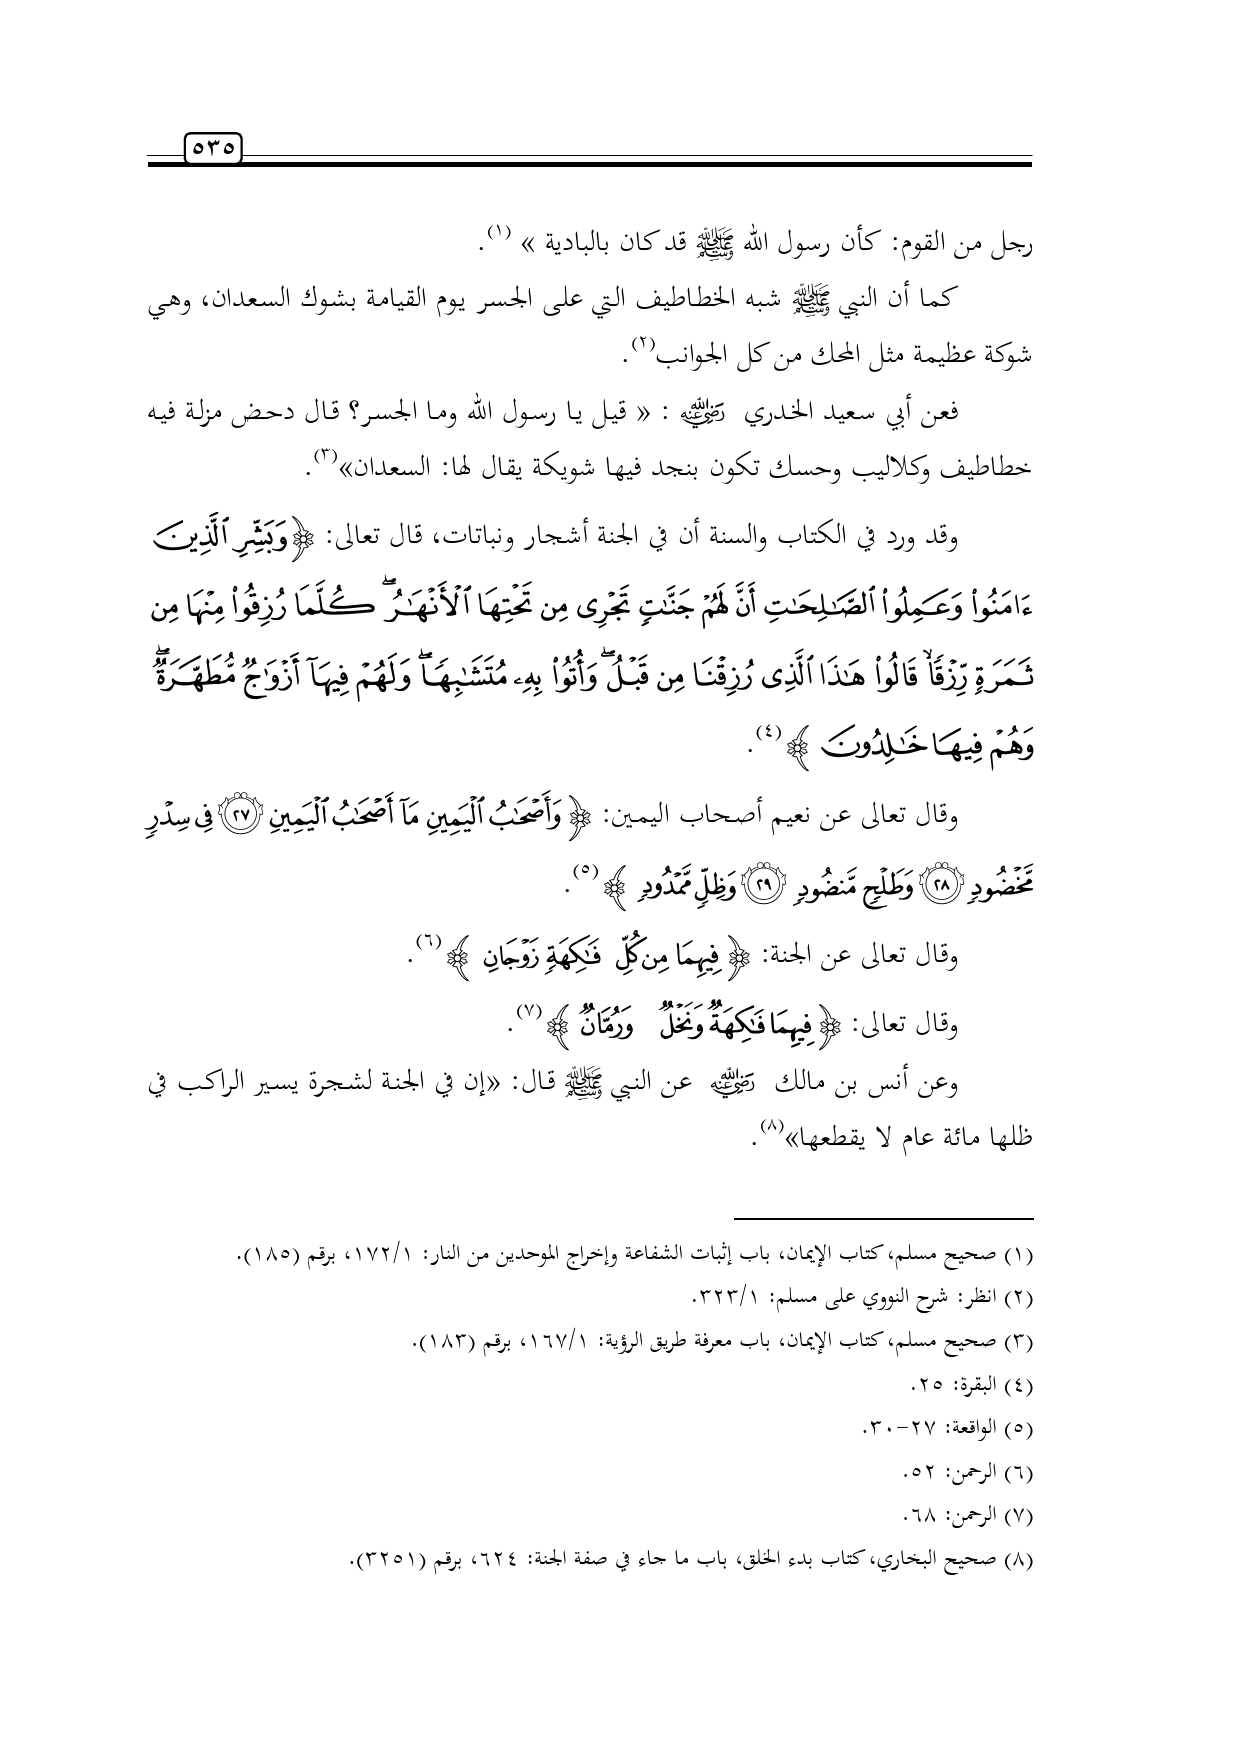 ٥٣٥
رجل من القوم: كأن رسول الله ﷺ قد كان بالبادية » (١).
كما أن النبي ﷺ شبه الخطاطيف التي على الجسر يوم القيامة بشوك السعدان، وهي
شوكة عظيمة مثل المحك من كل الجوانب(٢).
فعن أبي سعيد الخدري رضي الله عنه : « قيل يا رسول الله وما الجسر؟ قال دحض مزلة فيه
خطاطيف وكلاليب وحسك تكون بنجد فيها شويكة يقال لها: السعدان»(٣).
وقد ورد في الكتاب والسنة أن في الجنة أشجار ونباتات، قال تعالى: ﴿وَبَشِّرِ ٱلَّذِينَ
ءَامَنُوا۟ وَعَمِلُوا۟ ٱلصَّـٰلِحَـٰتِ أَنَّ لَهُمْ جَنَّـٰتٍ تَجْرِى مِن تَحْتِهَا ٱلْأَنْهَـٰرُ ۖ كُلَّمَا رُزِقُوا۟ مِنْهَا مِن
ثَمَرَةٍ رِّزْقًا ۙ قَالُوا۟ هَـٰذَا ٱلَّذِى رُزِقْنَا مِن قَبْلُ ۖ وَأُتُوا۟ بِهِۦ مُتَشَـٰبِهًا ۖ وَلَهُمْ فِيهَآ أَزْوَٰجٌ مُّطَهَّرَةٌ ۖ
وَهُمْ فِيهَا خَـٰلِدُونَ ﴾ (٤).
وقال تعالى عن نعيم أصحاب اليمين: ﴿ وَأَصْحَـٰبُ ٱلْيَمِينِ مَآ أَصْحَـٰبُ ٱلْيَمِينِ ٢٧ فِى سِدْرٍ
مَّخْضُودٍ ٢٨ وَطَلْحٍ مَّنضُودٍ ٢٩ وَظِلٍّ مَّمْدُودٍ ﴾ (٥).
وقال تعالى عن الجنة: ﴿ فِيهِمَا مِن كُلِّ فَـٰكِهَةٍ زَوْجَانِ ﴾ (٦).
وقال تعالى: ﴿ فِيهِمَا فَـٰكِهَةٌ وَنَخْلٌ وَرُمَّانٌ ﴾ (٧).
وعن أنس بن مالك رضي الله عنه عن النبي ﷺ قال: «إن في الجنة لشجرة يسير الراكب في
ظلها مائة عام لا يقطعها»(٨).
(١) صحيح مسلم، كتاب الإيمان، باب إثبات الشفاعة وإخراج الموحدين من النار: ١٧٢/١، برقم (١٨٥).
(٢) انظر: شرح النووي على مسلم: ٣٢٣/١.
(٣) صحيح مسلم، كتاب الإيمان، باب معرفة طريق الرؤية: ١٦٧/١، برقم (١٨٣).
(٤) البقرة: ٢٥.
(٥) الواقعة: ٢٧-٣٠.
(٦) الرحمن: ٥٢.
(٧) الرحمن: ٦٨.
(٨) صحيح البخاري، كتاب بدء الخلق، باب ما جاء في صفة الجنة: ٦٢٤، برقم (٣٢٥١).